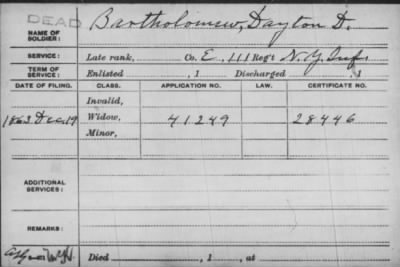 DEAD
NAME OF SOLDIER: Bartholomew, Dayton D.
SERVICE: Late rank, Co. E, 111 Reg't N.Y. Inf.
TERM OF SERVICE: Enlisted , 1 Discharged , 1
DATE OF FILING. CLASS. APPLICATION NO. LAW. CERTIFICATE NO.
Invalid,
1863 Dec. 19 Widow, 41249 28446
Minor,
ADDITIONAL SERVICES:
REMARKS:
Died , 1 , at